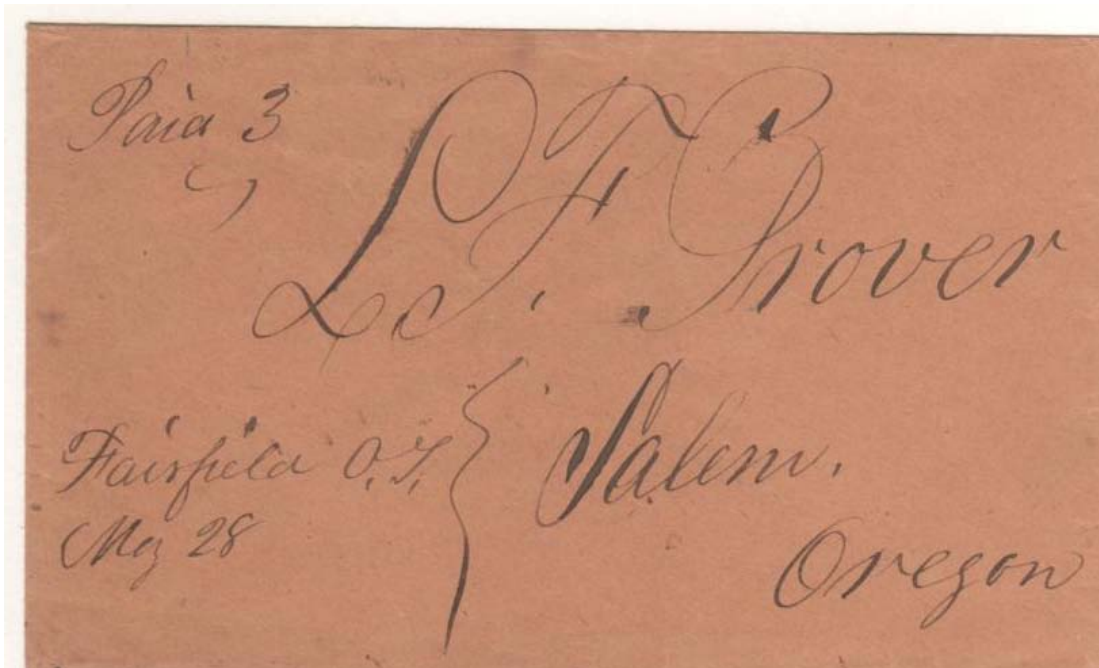 Paid 3
L. F. Grover
Fairfield O.T.
May 28
Salem.
Oregon